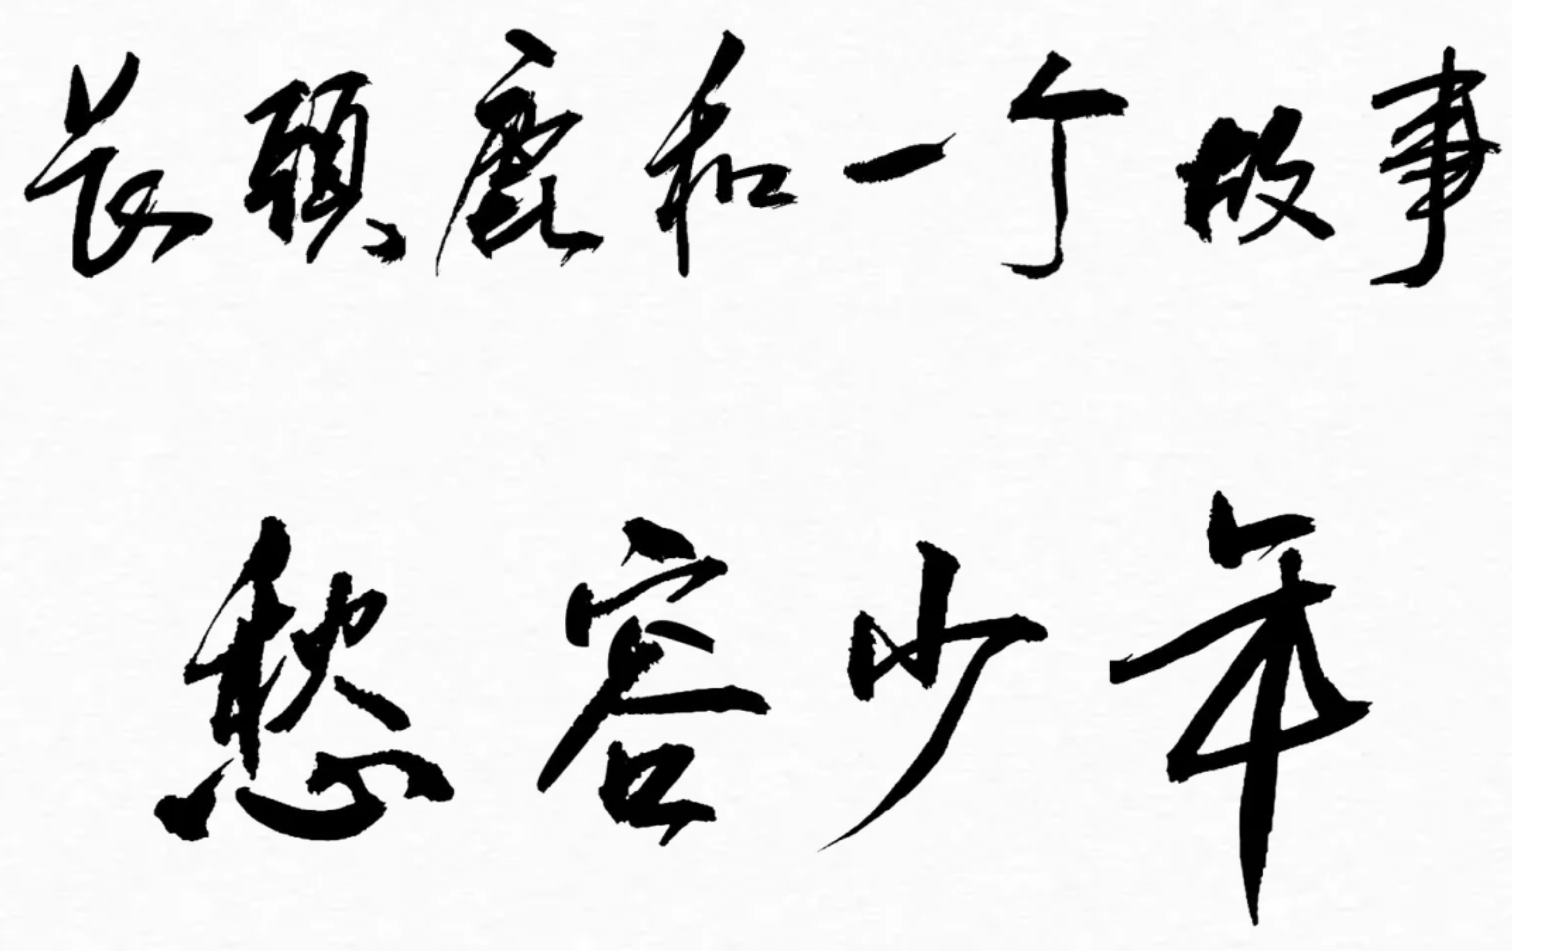 长頸鹿和一个故事
愁容少年